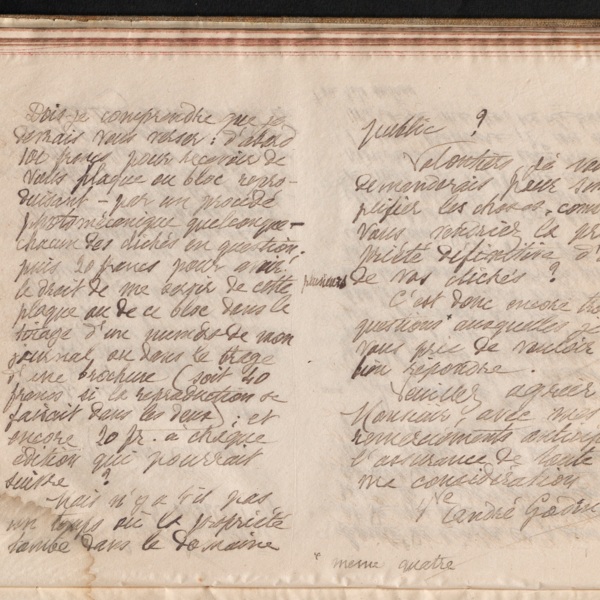 Dois-je comprendre que je
devrais vous verser : d'abord
francs pour recevoir de
vous plaque ou bloc repro-
duisant - par un procédé
photomécanique quelconque -
chacun des clichés en question,
puis 20 francs pour avoir
le droit de me servir de cette
plaque ou de ce bloc dans le
tirage d'un numéro de mon
journal, ou dans le tirage
d'une brochure (soit 40
francs si la reproduction se
faisait dans les deux) ; et
encore 20 fr. à chaque
édition qui pourrait
suivre ?
Mais n'y a t'il pas
un temps où la propriété
tombe dans le domaine
public ?
Volontiers, je vous
demanderais, pour sim
plifier les choses, com
vous
priété définitive d'
plusieurs
de vos clichés ?
C'est donc encore tro
questions* auxquelles je
vous prie de vouloir
bien répondre.
Veuillez agréer
Monsieur, avec mes
remerciements anticip
l'assurance de toute
ma considération
Vve André Godin
* même quatre